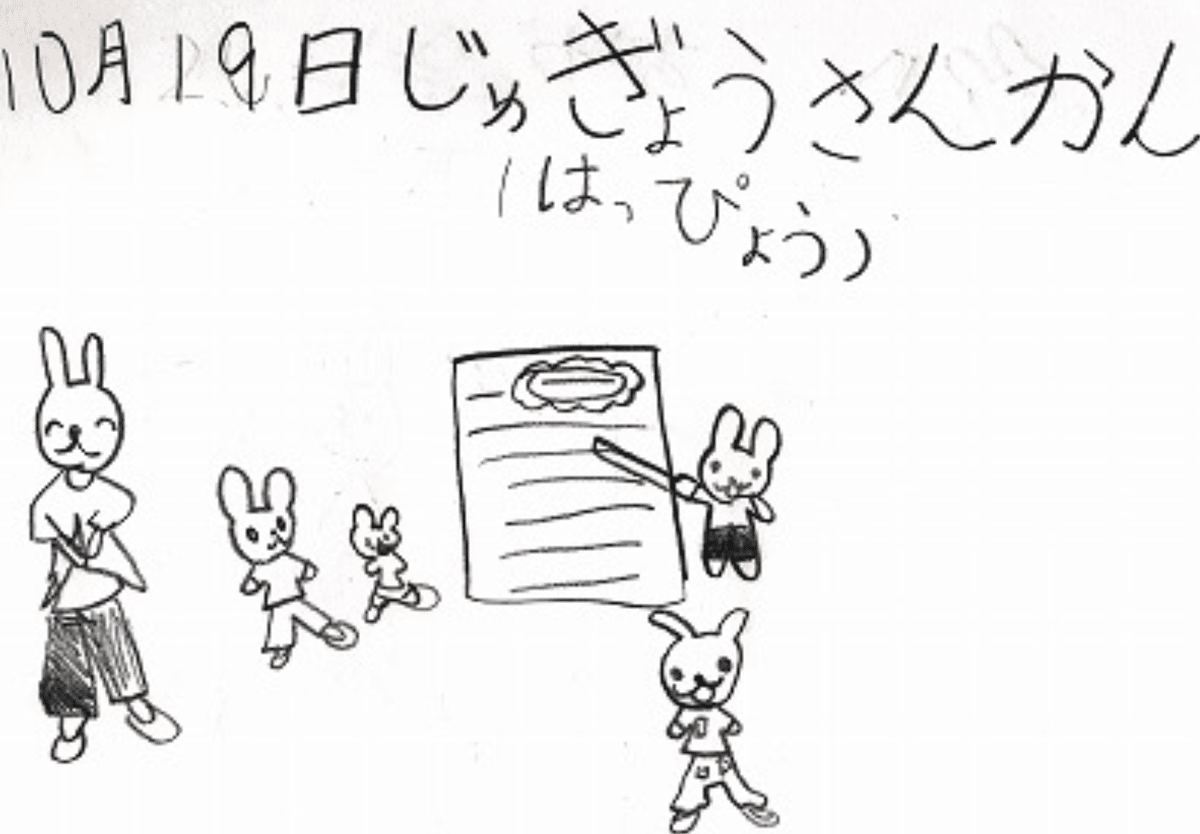 10月19日じゅぎょうさんかん
(はっぴょう)